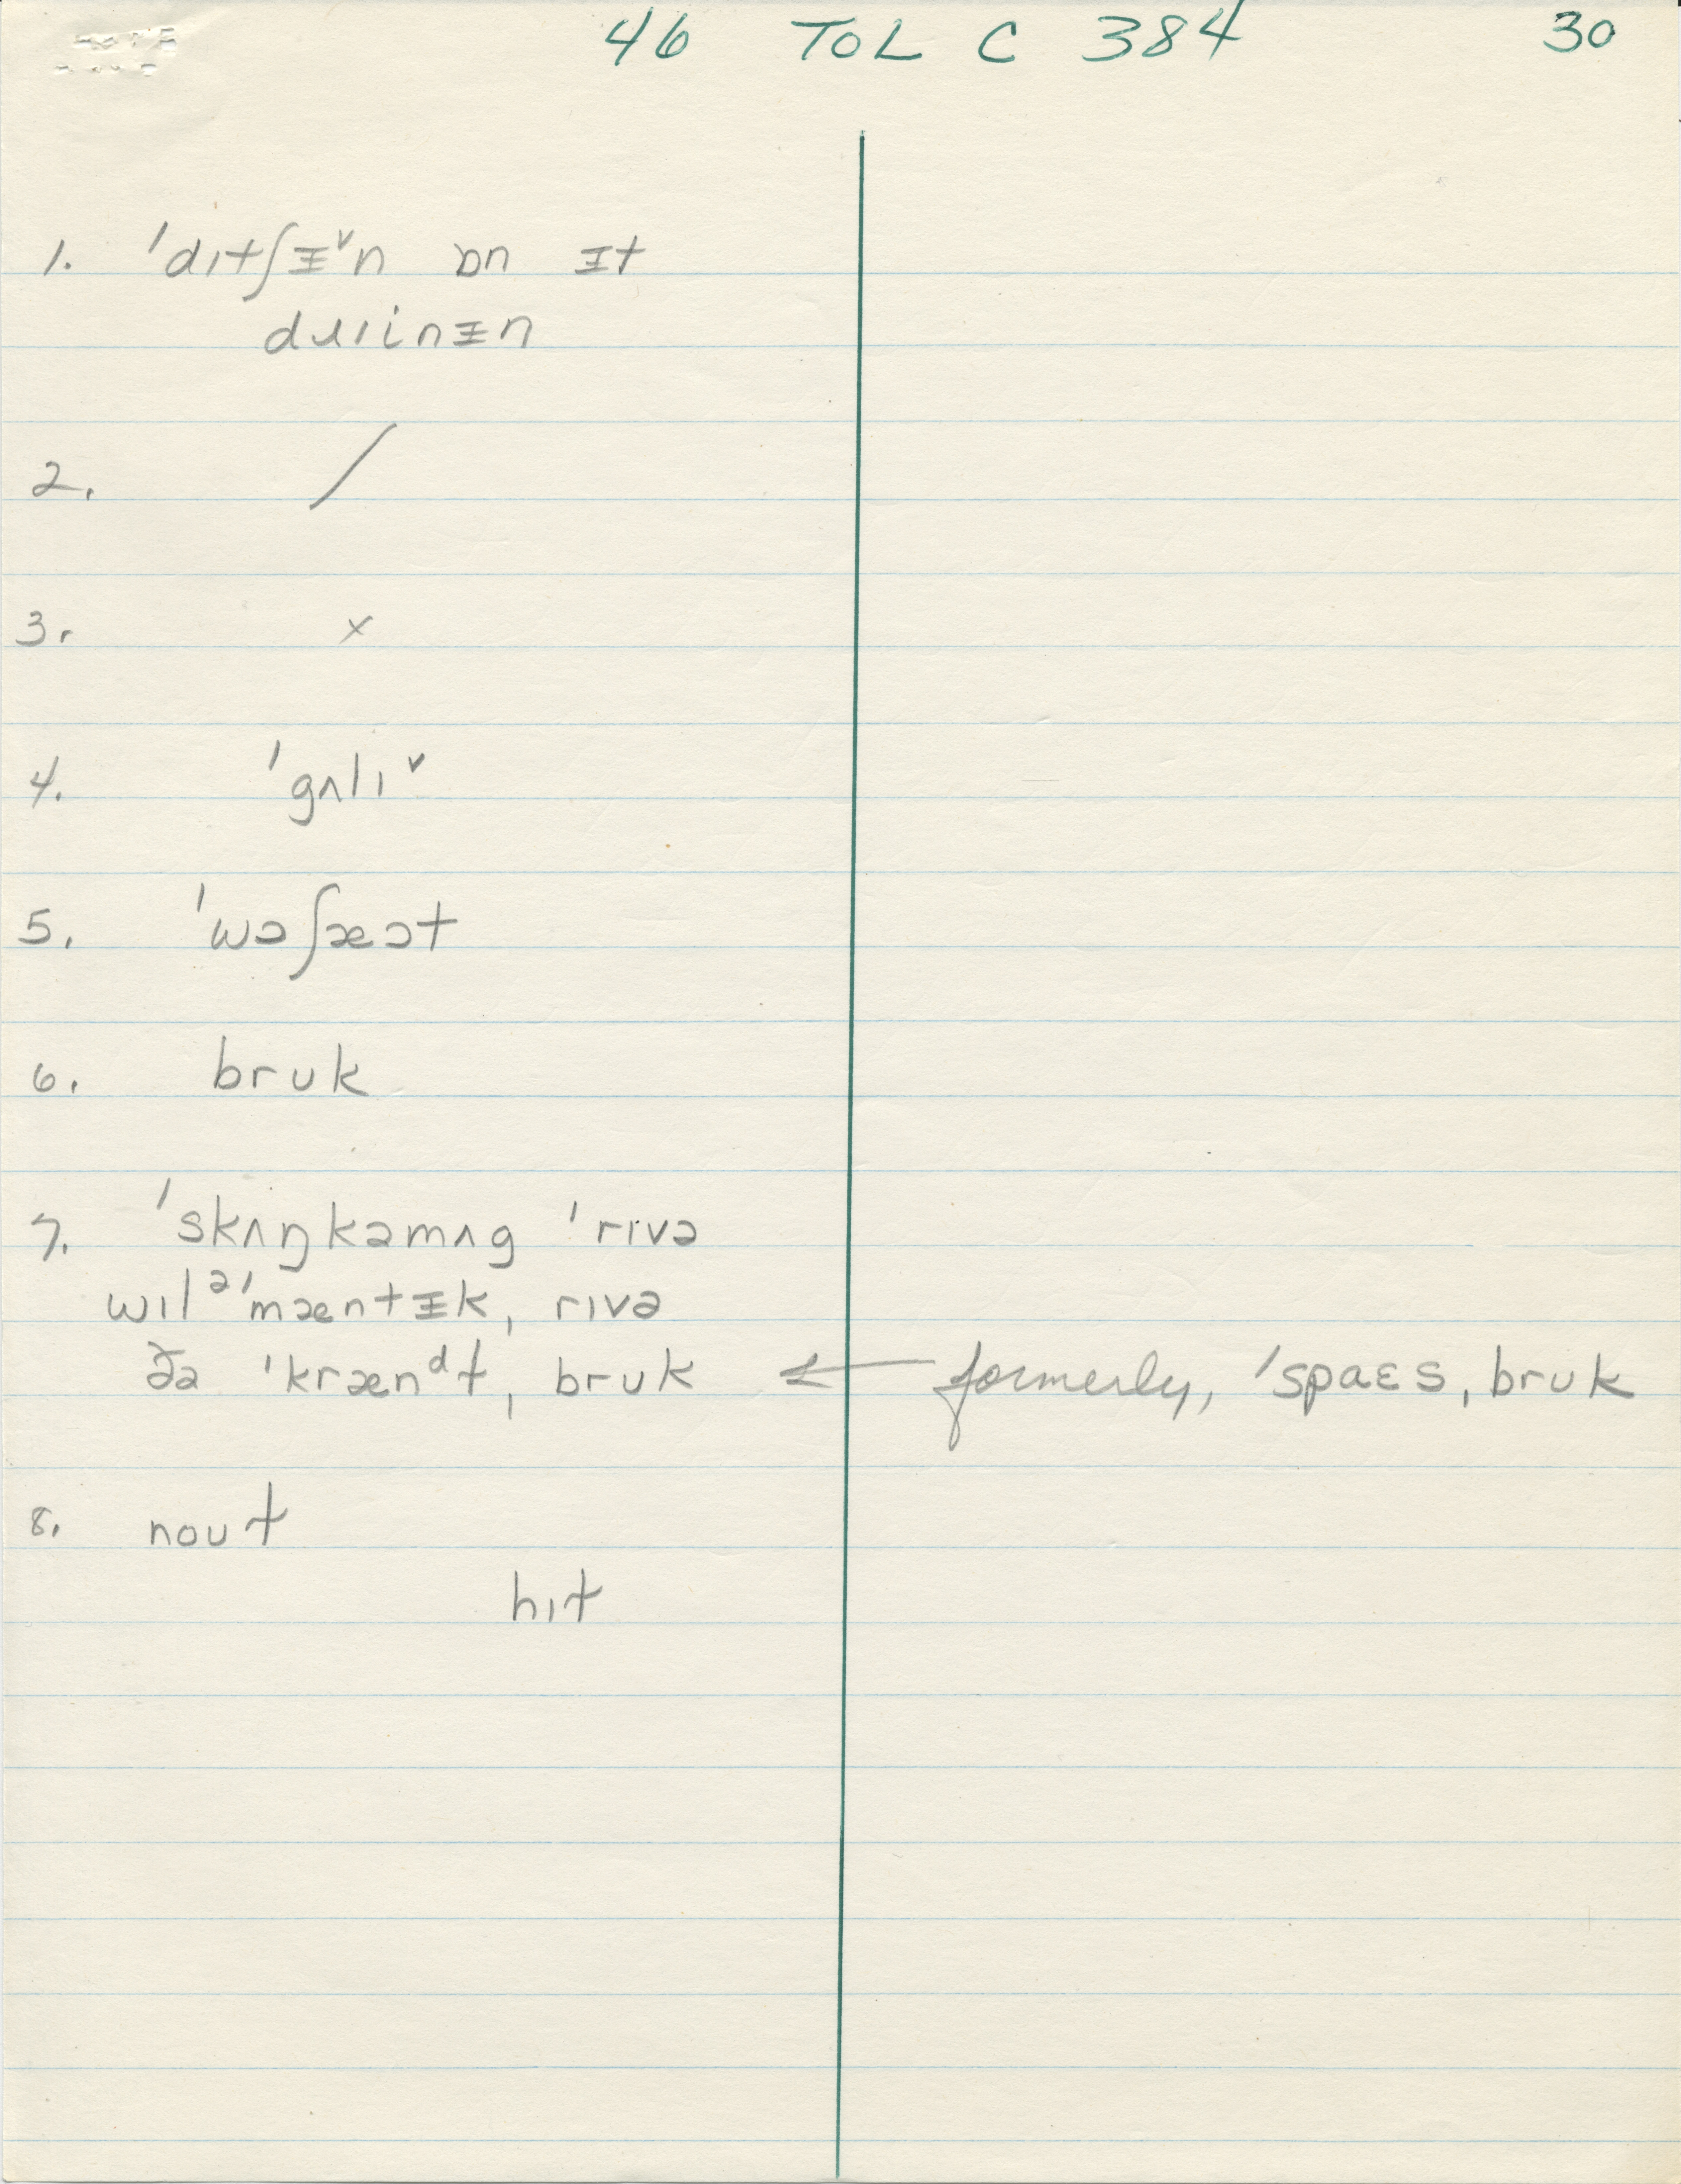 46 TOL C 384 30
1. ˈdɪtʃᵻ˅n ɒn ᵻt
dɹɪinᵻn
2. /
3. ×
4. ˈgʌlɪ˅
5. ˈwɔʃæət
6. brʊk
7. ˈskʌŋkəmʌg ˈrɪvə
wɪlᵊˈmæntᵻk, rɪvə
ðə ˈkrænᵈt, brʊk ← formerly, ˈspaɛs, brʊk
8. noʊt
hɪt